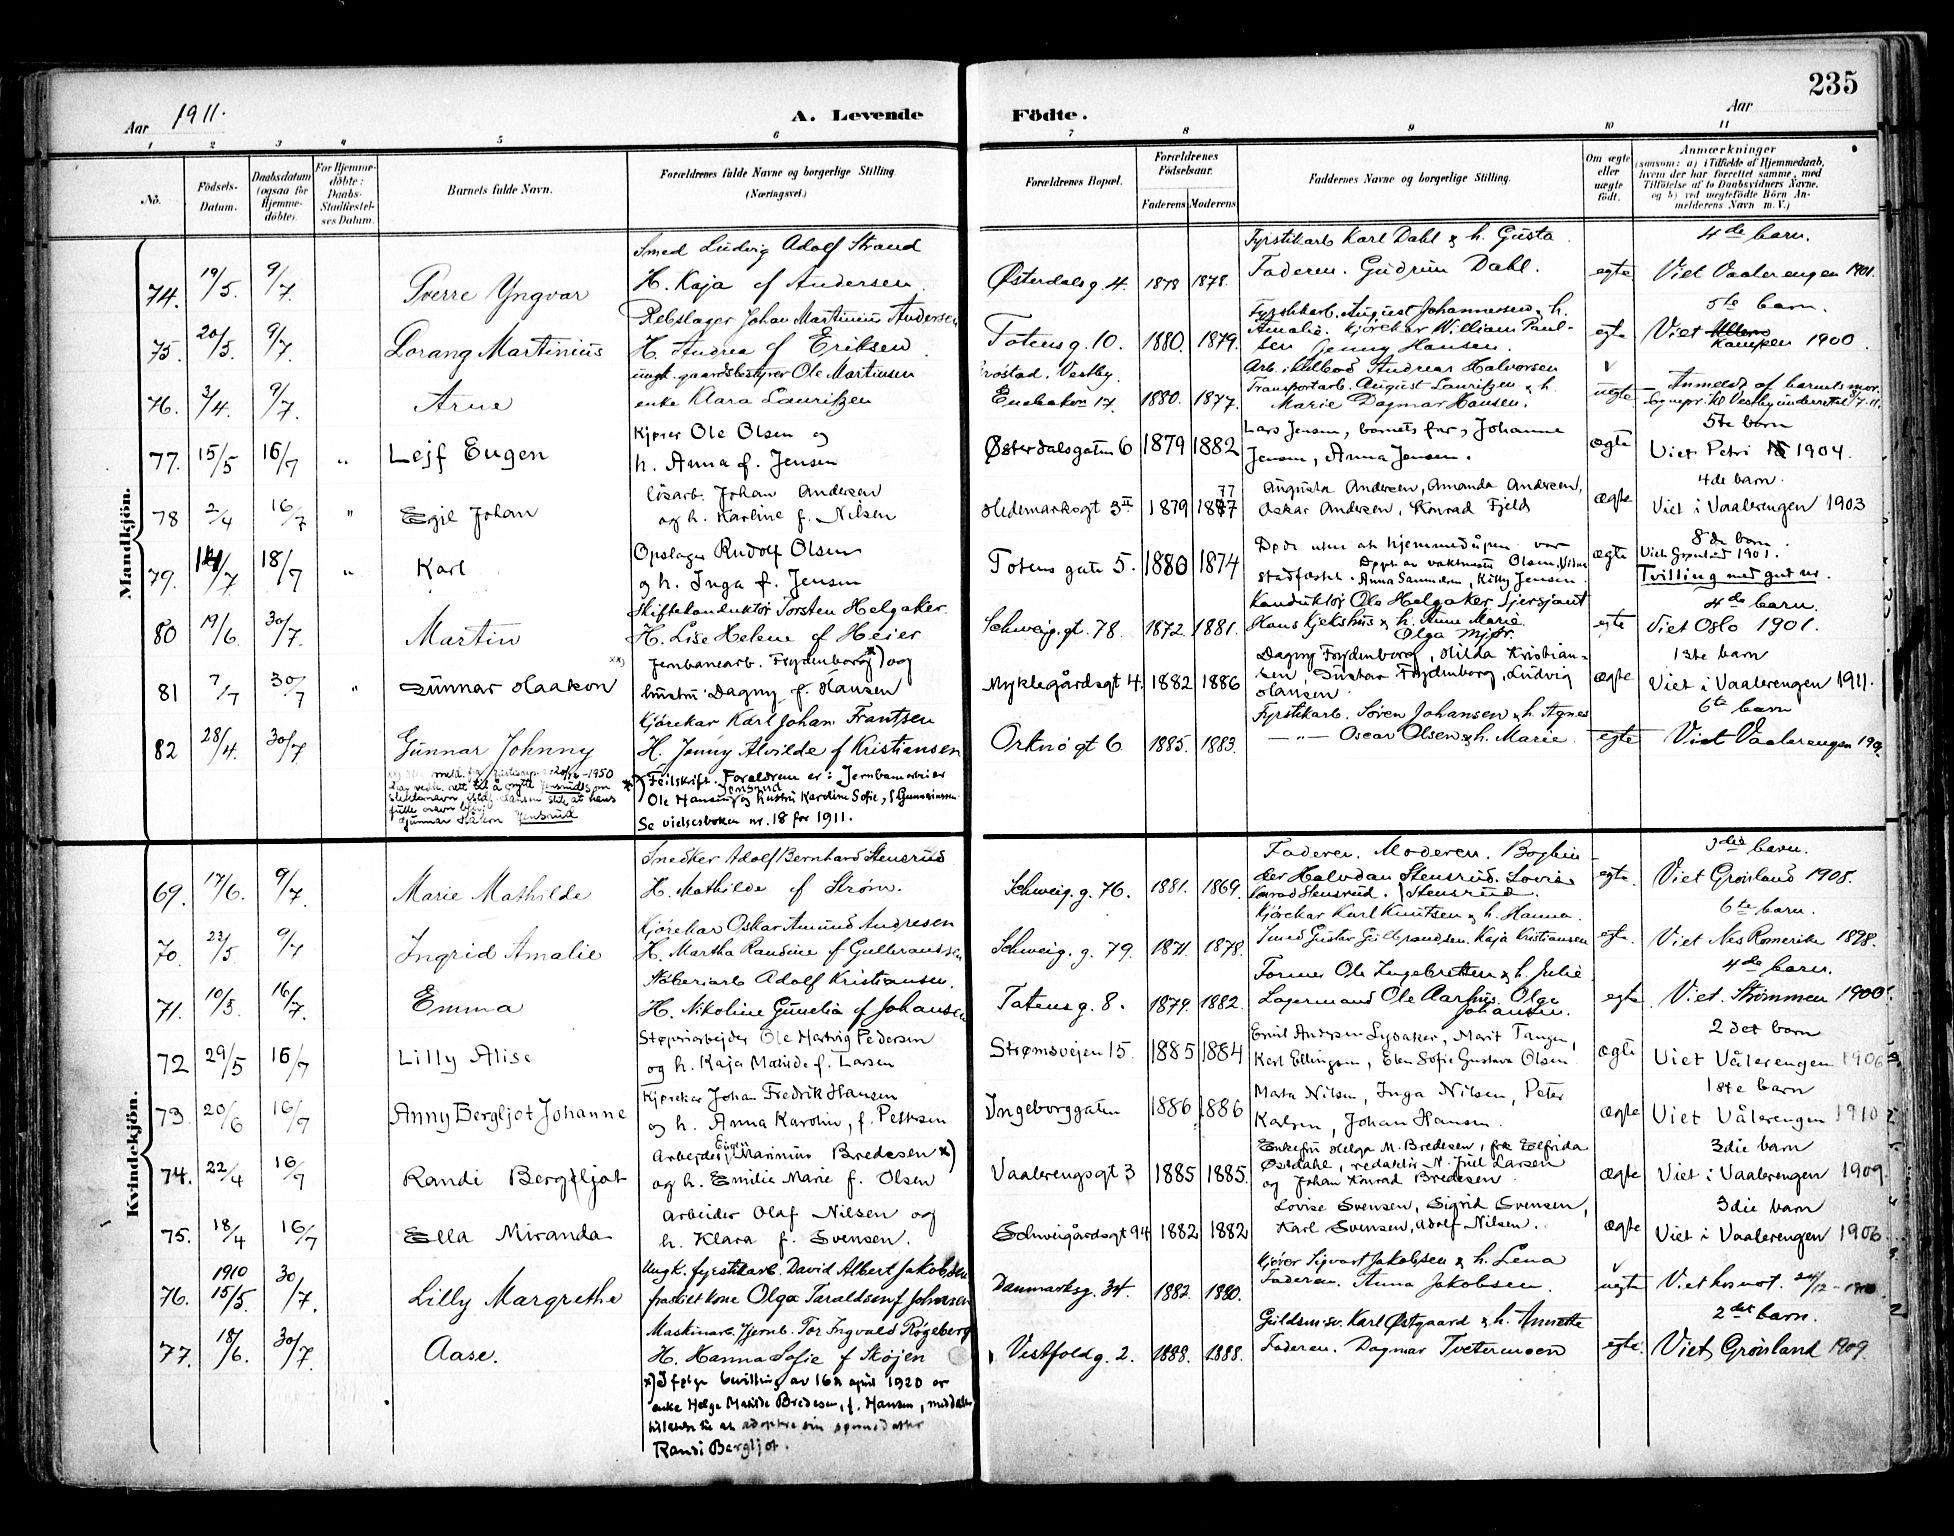 235
Aar 1911.
A. Levende Födte.
Aar
1 2 3 4 5 6 7 8 9 10 11
No.
Födsels-Datum.
Daabsdatum (ogsaa för Hjemme-döbte).
For Hjemme-döbte: Daabs-Stadfæstel-ses Datum.
Barnets fulde Navn.
Forældrenes fulde Navne og borgerlige Stilling. (Næringsvei.)
Forældrenes Bopæl.
Forældrenes Födselsaar.
Faderens. Moderens.
Faddernes Navne og borgerlige Stilling.
Om ægte eller uægte födt.
Anmærkninger (saasom: a) i Tilfælde af Hjemmedaab, hvem der har forrettet samme, med Tilföielse af to Daabsvidners Navne, og b) ved uægtefödte Börn An-melderens Navn m. V.)
Mandkjön.
Smed Ludvig Adolf Strand Fyrstikarb Karl Dahl & h. Gusta 4de barn.
74. 19/5. 9/7. Sverre Yngvar H. Kaja f Andersen. Østerdalsg. 4. 1878 1878. Faderen. Gudrun Dahl. egte Viet Vaalerengen 1901.
Rebslager Johan Martinius Andersen Fyrstikarb. August Johannesen & h. 5te barn.
75. 20/5. 9/7. Lorang Martinius H. Andrea f Eriksen. Totensg. 10. 1880. 1879. Amalie. Kjørekar William Paulsen Jenny Hansen. egte Viet Kampen 1900
ungk. gaardsbestyrer Ole Martinsen Vestby. Arb. Andreas Halvorsen
76. 3/4. 9/7. Arne enke Klara Lauritzen Enebakvn 17. 1880. 1877. Transportarb. August Lauritzen & h. Marie Dagmar Hansen. uegte Anmeldt af barnets mor.
77. 15/5 16/7 " Lejf Eugen Kjører Ole Olsen og h. Anna f. Jensen Østerdalsgaten 6 1879 1882 Lars Jensen, barnets far, Johanne Jensen, Anna Jensen. ægte 5te barn Viet Petri 1904.
78 2/4 16/7 " Egil Johan løsarb. Johan Andersen og h. Karline f. Nilsen Hedemarksgt 3 II 1879 1877 Augusta Andersen, Amanda Andersen, Oskar Andersen, Konrad Fjeld ægte 4de barn. Viet i Vaalerengen 1903
79. 14/7 18/7 " Karl Opslager Rudolf Olsen og h. Inga f. Jensen Totens gate 5. 1880 1874 Døde uten at hjemmedåpen var stadfæstet. Døpt av vaktmestr Olsen, Vitne Anna Saunderen, Kitty Jensen. ægte 8de barn Viet Grønland 1901. Tvilling med gut nr.
80 19/6. 30/7. Martin Skiftekonduktør Torsten Helgaker. H. Lise Helene f Heier Schweig. gt. 78. 1872. 1881. Konduktør Ole Helgaker, Sjersjant Hans Kjekshus & h. Anne Marie. Olga Mjør. egte 4de barn. Viet Oslo 1901.
81 7/7 30/7 " Gunnar Haakon Jernbanearb. Frydenborg x) og hustru Dagny f. Hansen Nyklegårdsgt 4. 1882 1886 Dagny Frydenborg, Hilda Kristiansen, Gustav Frydenborg, Ludvig Hansen ægte 1ste barn Viet i Vaalerengen 1911.
82 28/4. 30/7. Gunnar Johnny Kjørekar Karl Johan Frantsen H. Jenny Alvilde f Kristiansen Orknø gt 6 1885. 1883. Fyrstikarb. Søren Johansen & h. Agnes — " — Oscar Olsen & h. Marie. egte 6te barn Viet Vaalerengen
x) Feilskrift. Foreldrene er: Jernbanearbeier Ole Hansen Jensrud og hustru Karoline Sofie, f. Gunnariussen. Se vielsesboken nr. 18 for 1911.
Gunnar Håkon Jensrud
Kvindekjön.
69. 17/6. 9/7. Marie Mathilde Snedker Adolf Bernhard Stensrud H. Mathilde f Strøm. Schweig. g. 76. 1881. 1869. Faderen. Moderen. Bogbinder Halvdan Stensrud. Lovise Stensrud. Konrad Stensrud. egte. 3die barn. Viet Grønland 1908.
70. 22/5 9/7 Ingrid Amalie Kjørekar Oskar Amund Andresen H. Martha Randine f Gulbrandsen Schweig. g. 79. 1871. 1878. Kjørekar Karl Knutsen & h. Hanna. Smed Gustav Gulbrandsen. Kaja Kristiansen egte. 6te barn. Viet Nes Romerike 1898.
71. 10/5. 16/7. Emma Støberiarb Adolf Kristiansen. H. Nikoline Gunelia f Johansen Totensg. 8. 1879. 1882. Former Ole Ingebretsen & h. Julie Lagermand Ole Aarhus. Olga Johansen. egte 4de barn. Viet. Strømmen 1900.
72 29/5 16/7 Lilly Alise Støperiarbejder Ole Hartvig Pedersen og h. Kaja Matilde f. Larsen Strømsvejen 15. 1885 1884 Emil Andersen Lysaker, Marit Tangen, Karl Ellingsen, Elen Sofie Gustava Olsen ægte 2det barn Viet Vålerengen 1906
73. 20/6 16/7 Anny Bergljot Johanne Kjørekar Johan Fredrik Hansen og h. Anna Karolin, f. Pettersen Ingeborggaten 1886 1886 Marta Nilsen, Inga Nilsen, Peter Kalsen, Johan Hansen. ægte 1ste barn Viet Vålerengen 1910
74. 22/4 16/7 Randi Bergljot Arbejder Eugen Marinius Bredesen x) og h. Emilie Marie f. Olsen Vaalerengsgt 3 1885 1885. Enkefru Helga M. Bredesen, frk Elfrida Østdahl, redaktør N. Juel Larsen og Johan Konrad Bredesen ægte 3die barn Viet i Vaalerengen 1909.
75. 18/4 16/7 Ella Miranda Arbeider Olaf Nilsen og h. Klara f. Svensen. Schweigårdsgt 94 1882 1882 Lovise Svensen, Sigrid Svensen, Karl Svensen, Adolf Nilsen. ægte 3die barn Viet i Vaalerengen 1906
76. 1910 15/5. 30/7. Lilly Margrethe Ungk. fyrstikarb. David Albert Jakobsen fraskilt kone Olga Taraldsen f Johnsen Danmarksg. 34. 1882. 1880. Kjører Sigvart Jakobsen & h. Lena Faderen. Anna Jakobsen. uegte Viet hos not.
77. 18/6. 30/7. Aase. Maskinarb. Jernb. Tor Ingvald Røgeberg H. Hanna Sofie f Skøjen Vestfoldg. 2. 1888. 1888. Guldsm.sv. Karl Østgaard & h. Annette Faderen. Dagmar Tvetermoen egte. 2det barn. Viet Grønland 1909.
x) Ifølge bevilling av 16de april 1920 er enke Helga Matilde Bredesen, f. Hansen, meddelt tilladelse til at adoptere sin sønnedatter Randi Bergljot.